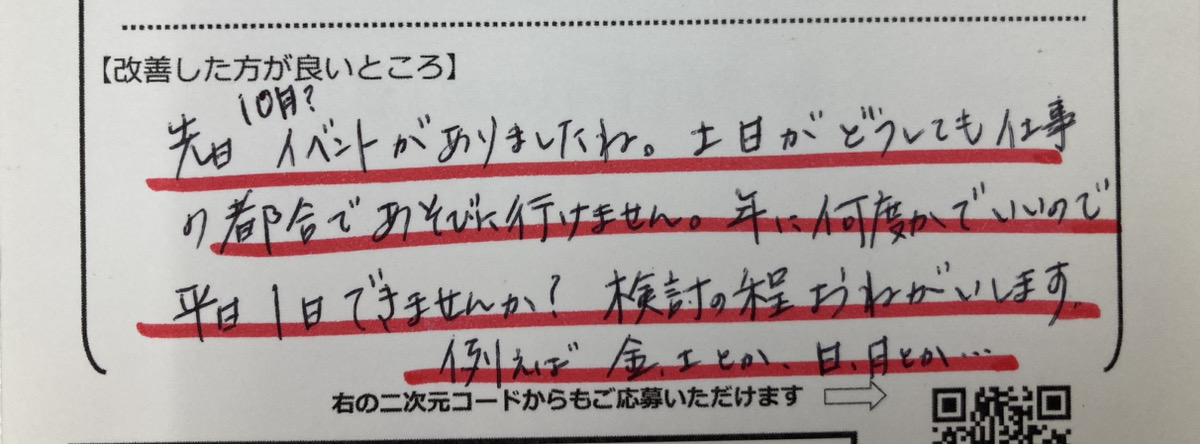 【改善した方が良いところ】
10月?
先日 イベントがありましたね。土日がどうしても仕事
の都合であそびに行けません。年に何度かでいいので
平日1日できませんか? 検討の程おねがいします.
例えば 金、土とか、日、月とか…
右の二次元コードからもご応募いただけます